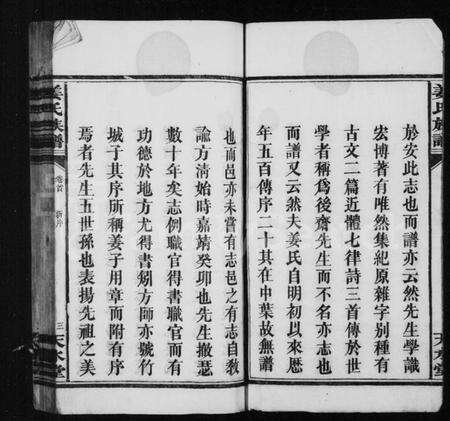 姜氏族譜
天水堂
於安此志也而譜亦云然先生學識
宏博著有唯然集紀原雜字别種有
古文二篇近體七律詩三首傳於世
學者稱為後齋先生而不名亦志也
而譜又云然夫姜氏自明初以來厯
年五百傳序二十其在中葉故無譜
也而邑亦未嘗有志邑之有志自教
諭方清始時嘉靖癸卯也先生撤瑟
數十年矣志例職官得書職官而有
功德於地方尤得書矧方師亦號竹
城子其序所稱姜子用章而附有序
焉者先生五世孫也表揚先祖之美
姜氏族譜
卷首
三
天水堂